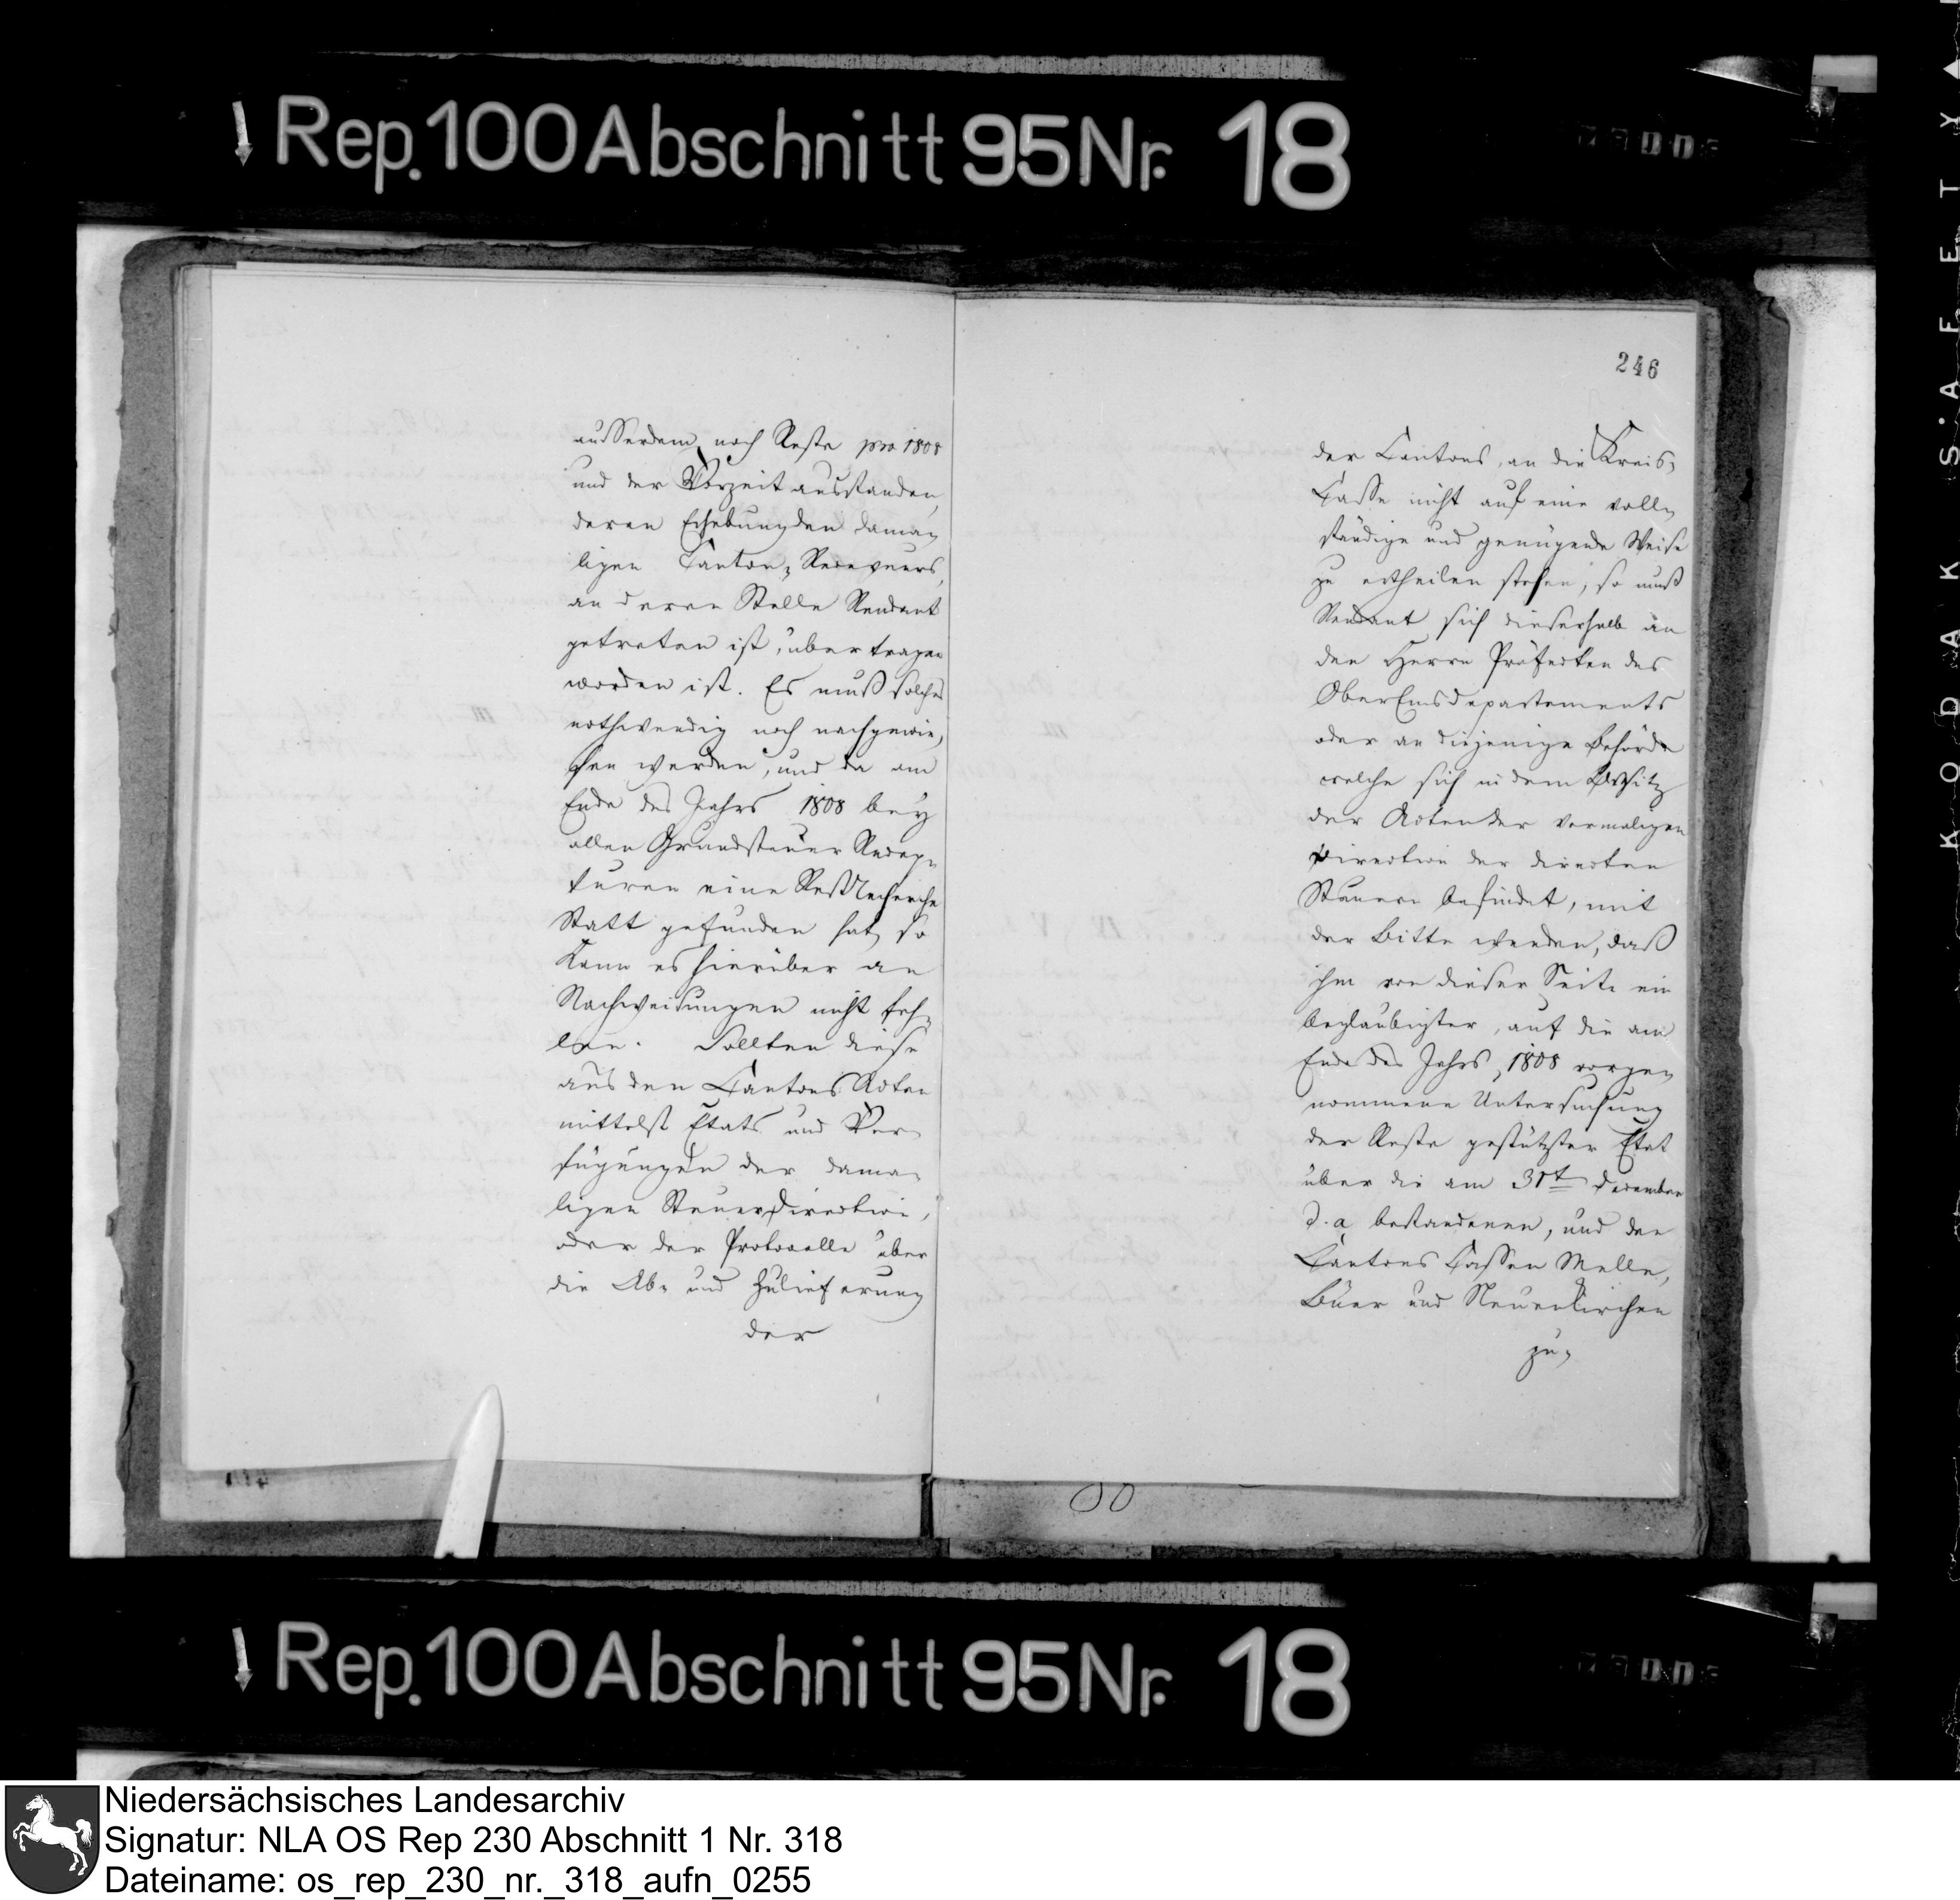 Rep. 100 Abschnitt 95 Nr. 18
ausserdem noch Reste pro 1808
und der Vorzeit ausstanden,
deren Erhebung den dama-
ligen Canton-Receveurs,
an deren Stelle Rendant
getreten ist, übertragen
worden ist. Es muß solches
nothwendig noch nachgewie-
sen werden, und da am
Ende des Jahrs 1808 bey
allen Grundsteuer Recep-
turen eine Rest Recherche
Statt gefunden hat, so
kann es hierüber an
Nachweisungen nicht feh-
len. Sollten diese
aus den Cantons Acten
mittelst Etats und Ver-
fügungen der dama-
ligen Steuer Direction,
oder der Protocolle über
die Ab- und Zulieferung
der
246
der Cantons, an die Kreis-
Casse nicht auf eine voll-
ständige und genügende Weise
zu ertheilen stehen, so muß
Rendant sich dieserhalb an
den Herrn Präfecten des
OberEmsdepartements
oder an diejenige Behörde
welche sich in dem Besitz
der Acten der vormaligen
Direction der directen
Steuern befindet, mit
der Bitte wenden, daß
ihm von dieser Seite ein
beglaubigter, auf die am
Ende des Jahrs 1808 vorge-
nommene Untersuchung
der Reste gestützter Etat
über die am 31t December
d. a. bestandenen, und den
Cantons Cassen Melle,
Buer und Neuenkirchen
zu-
Rep. 100 Abschnitt 95 Nr. 18
KODAK SAFETY
Niedersächsisches Landesarchiv
Signatur: NLA OS Rep 230 Abschnitt 1 Nr. 318
Dateiname: os_rep_230_nr._318_aufn_0255